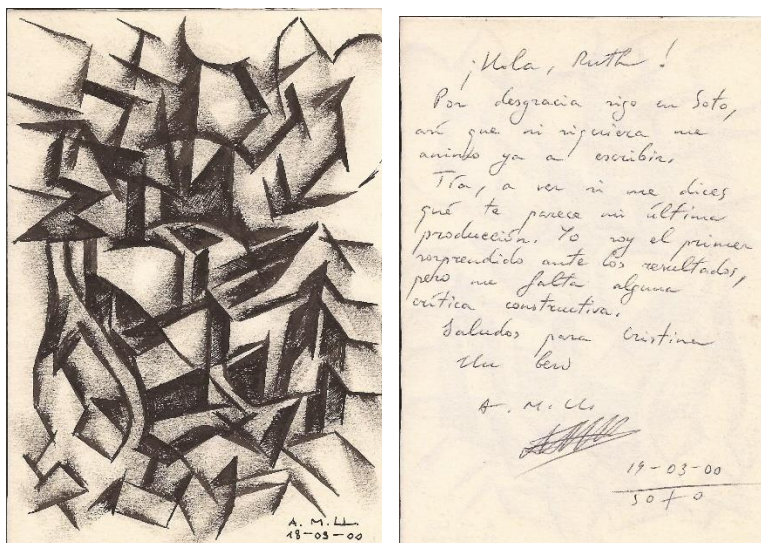 A. M. LL.
18-03-00
¡Hola, Ruth!
Por desgracia sigo en Soto,
así que ni siquiera me
animo ya a escribir.
Tía, a ver si me dices
qué te parece mi última
producción. Yo soy el primer
sorprendido ante los resultados,
pero me falta alguna
crítica constructiva.
Saludos para Cristina
Un beso
A. M. Ll.
19-03-00
SOTO